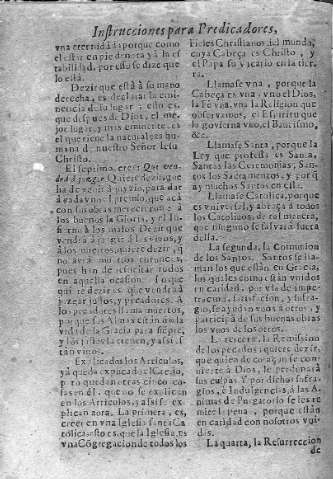 Instrucciones para Predicadores,
vna eternidad: porque como
el estar en pie denota y à la es
tabilidad, por esso se dize que
lo està.
Dezir que està à su mano
derecha, es declarar la emi-
nencia de su lugar: esto es,
que despues de Dios, el me-
jor lugar, y mas eminente es
el que tiene la naturaleza hu-
mana de nuestro Señor Iesu
Christo.
El septimo, creer Que ven-
drà à juzgar. Quiere dezir, que
ha de venir à juyzio, para dar
à cada vno el premio, que aca
con sus obras mereciere: à
los buenos la Gloria, y el In-
fierno à los malos. Dezir que
vendrà à juzgar à los viuos, y
à los muertos, quiere dezir, q
no avrà muertos entonces,
pues han de resucitar todos
en aquella ocasion. Lo que
que se dezir es que vendrà à
juzgar justos, y pecadores. A
los pecadores llama muertos,
porque sus Almas estàn sin la
vida de la Gracia para siẽpre,
y los justos la tienen, y assi es
tàn viuos.
Explicados los Articulos,
ya queda explicado el Credo,
pero quedan otras cinco co-
sas en èl, que no se explican
en los Articulos, y assi se ex-
plican aora. La primera, es,
creer en vna Iglesia santa Ca
tolica: esto es, que la Iglesia, es
vna Cõgregacion de todos los
Fieles Christianos del mundo,
cuya Cabeça es Christo, y
el Papa su Vicario en la tier-
ra.
Llamase vna, porque la
Cabeça es vna, vno el Dios,
la Fè vna, vna la Religion que
observamos, el Espiritu que
la govierna vno, el Bautismo,
&c.
Llamase Santa, porque la
Ley que professa es Santa,
Santas las Ceremonias, San-
tos los Sacramentos, y porq̃
ay muchos Santos en ella.
Llamase Catolica, porque
es vniversal, y abraça à todos
los Catolicos, de tal manera,
que ninguno se salvarà fuera
della.
La segunda, la Comunion
de los Santos. Santos se lla-
man los que estàn en Gracia,
los quales como estàn vnidos
en caridad, por via de impe-
tracion, satisfacion, y sufra-
gio, se ayudan vnos à otros, y
participan de las buenas obras
los vnos de los otros.
La tercera, la Remission
de los pecados: quiere dezir,
que quien de coraçon se con-
uierte à Dios, le perdonarà
sus culpas. Y por dichos sufra-
gios, è Indulgencias, à las A-
nimas de Purgatorio se les re
mite la pena, porque estàn
en caridad con nosotros vni-
das.
La quarta, la Resurreccion
de